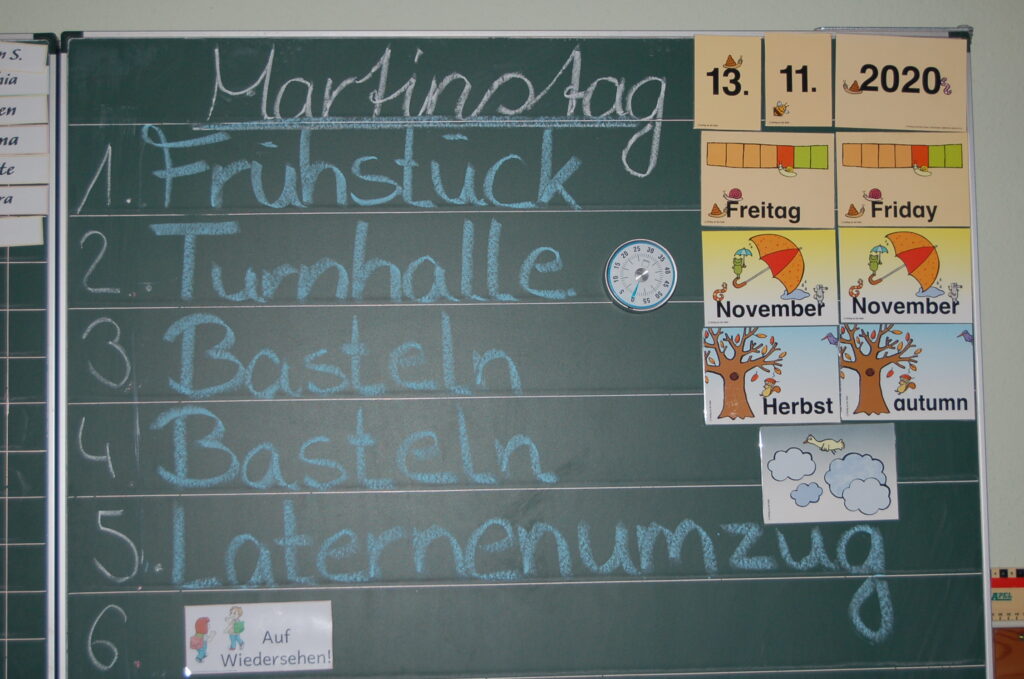 Martinstag
13. 11. 2020
1. Frühstück
Freitag Friday
2. Turnhalle
November November
3. Basteln
Herbst autumn
4. Basteln
5. Laternenumzug
6.
Auf
Wiedersehen!
0 5 10 15 20 25 30 35 40 45 50 55